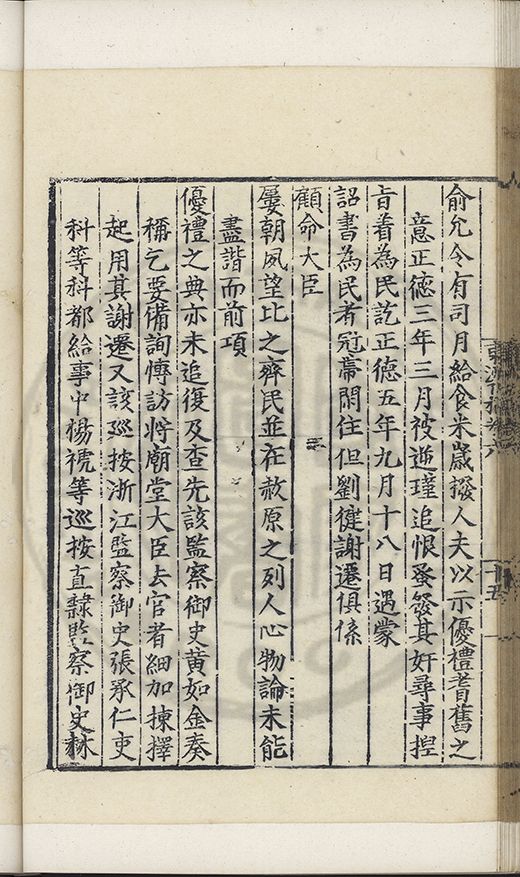 俞允令有司月給食米歲撥人夫以示優禮耆舊之
意正德三年三月被逆瑾追恨蚤發其奸尋事捏
旨着為民訖正德五年九月十八日遇蒙
詔書為民者冠帶閑住但劉健謝遷俱係
顧命大臣
屢朝夙望比之齊民並在赦原之列人心物論未能
盡諧而前項
優禮之典亦未追復及查先該監察御史黄如金奏
稱乞要備詢愽訪將廟堂大臣去官者細加揀擇
起用其謝遷又該巡按浙江監察御史張承仁吏
科等科都給事中楊禠等巡按直隸監察御史林
十五